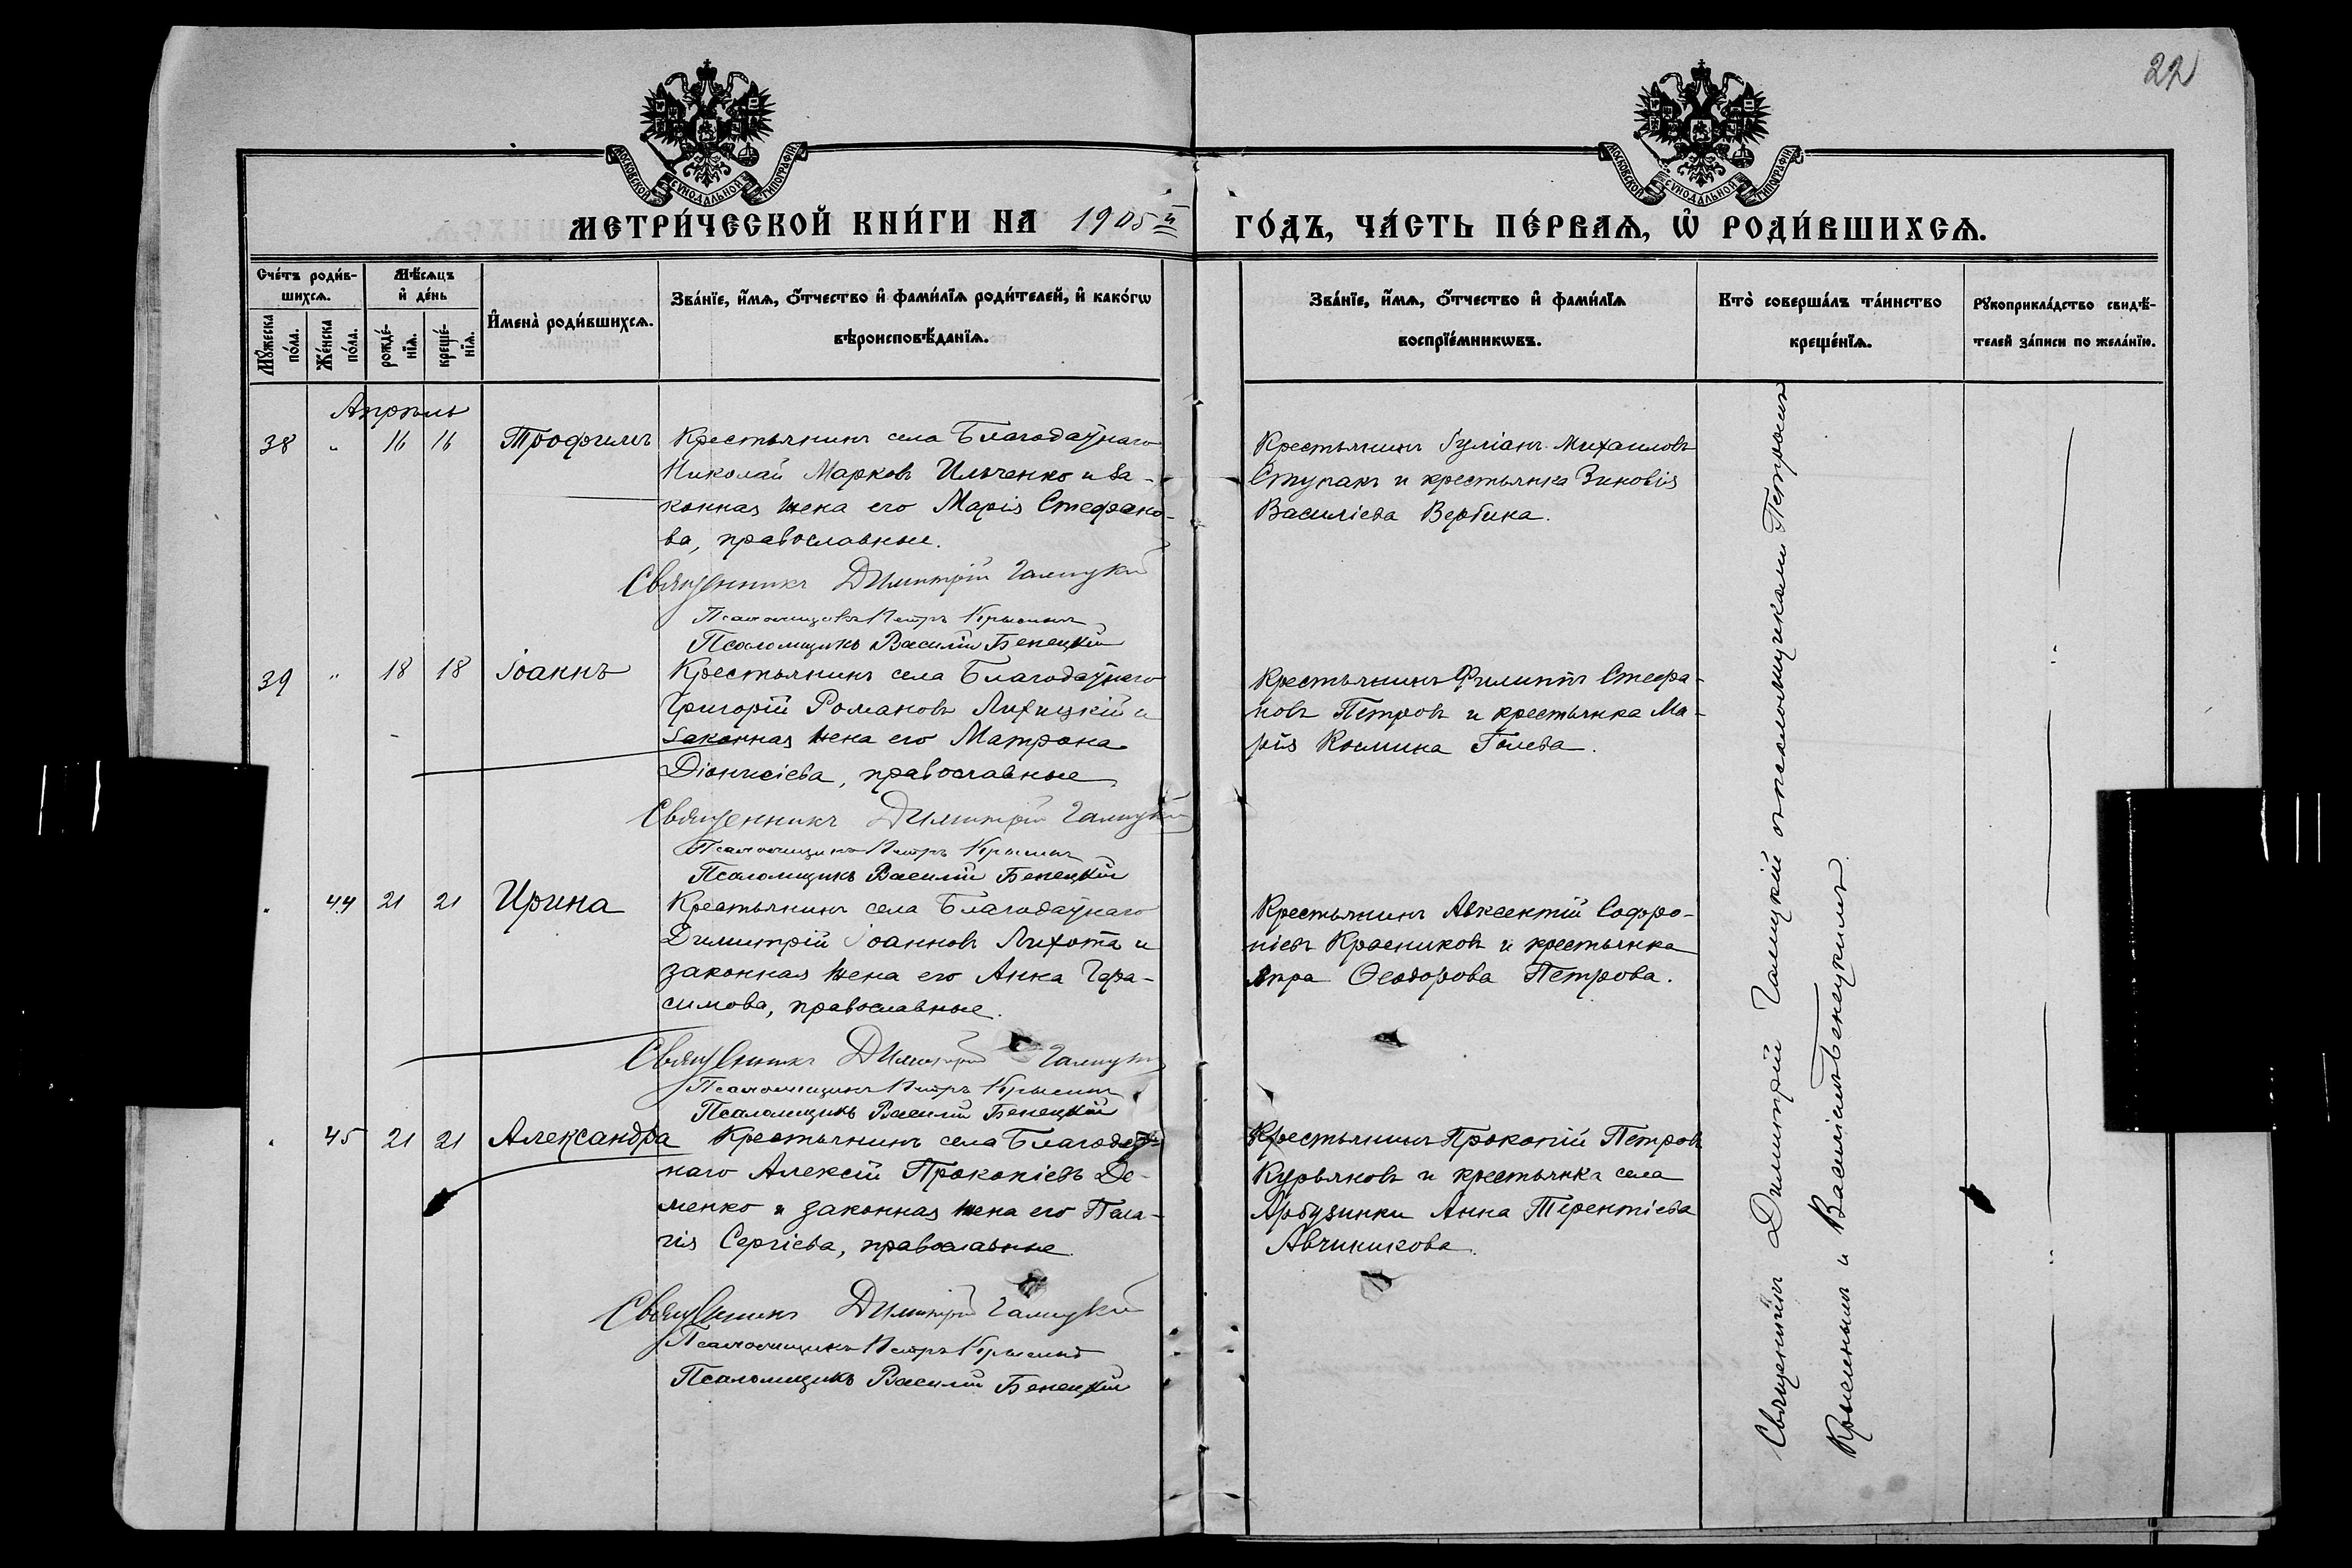 22
МОСКОВСКОЙ СѴНОДАЛЬНОЙ ТИПОГРАФІИ
МОСКОВСКОЙ СѴНОДАЛЬНОЙ ТИПОГРАФІИ
МЕТРИ́ЧЕСКОЙ КНИ́ГИ НА 1905й ГО́ДЪ, ЧА́СТЬ ПЕ́РВАѦ, Ѡ РОДИ́ВШИХСѦ.
Сче́тъ роди́в-
шихсѧ.
Мꙋ́жеска
по́ла.
Же́нска
по́ла.
Мѣ́сѧцъ
и҆ де́нь
рожде́-
нїѧ.
креще́-
нїѧ.
И҆мена̀ роди́вшихсѧ.
Зва́нїе, и҆́мѧ, ѻ҆́тчество и҆ фами́лїѧ роди́телей, и҆ како́гѡ
вѣроисповѣ́данїѧ.
Зва́нїе, и҆́мѧ, ѻ҆́тчество и҆ фами́лїѧ
воспрїе́мникѡвъ.
Кто̀ соверша́лъ та́инство
креще́нїѧ.
Рꙋкоприкла́дство свидѣ́-
телей за́писи по жела́нїю.
Апрѣль
38 " 16 16 Трофимъ
Крестьянинъ села Благодатнаго
Николай Марковъ Ильченко и за-
конная жена его Марія Стефано-
ва, православные.
Священникъ Димитрій Галицкій
Псаломщикъ Петръ Крысинъ
Псаломщикъ Василій Бенецкій
Крестьянинъ Іуліанъ Михаиловъ
Ступакъ и крестьянка Зиновія
Василіева Вербина.
39 " 18 18 Іоаннъ
Крестьянинъ села Благодатнаго
Григорій Романовъ Лихицкій и
законная жена его Матрона
Діонисіева, православные
Священникъ Димитрій Галицкій
Псаломщикъ Петръ Крысинъ
Псаломщикъ Василій Бенецкій
Крестьянинъ Филиппъ Стефа-
новъ Петровъ и крестьянка Ма-
рія Космина Голева.
" 44 21 21 Ирина
Крестьянинъ села Благодатнаго
Димитрій Іоанновъ Лихота и
законная жена его Анна Гера-
симова, православные.
Священникъ Димитрій Галицкій
Псаломщикъ Петръ Крысинъ
Псаломщикъ Василій Бенецкій
Крестьянинъ Авксентій Софро-
ніевъ Красниковъ и крестьянка
Ѳеодорова Петрова.
" 45 21 21 Александра
Крестьянинъ села Благодат-
наго Алексій Прокопіевъ Де-
менко и законная жена его Пела-
гія Сергіева, православные.
Священникъ Димитрій Галицкій
Псаломщикъ Петръ Крысинъ
Псаломщикъ Василій Бенецкій
Крестьянинъ Прокопій Петровъ
Курьяновъ и крестьянка села
Арбузинки Анна Терентіева
Авчиникова.
Священникъ Димитрій Галицкій съ псаломщиками Петромъ
Крысинымъ и Василіемъ Бенецкимъ.